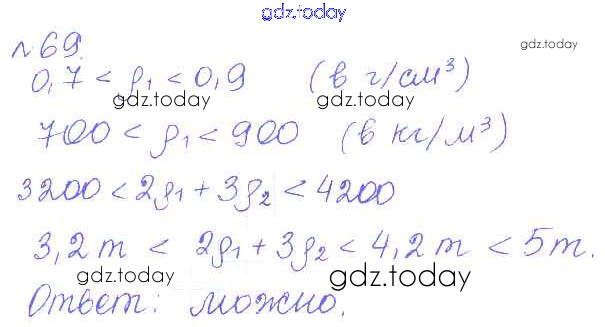 gdz.today
№69.
0,7 < ρ₁ < 0,9 (в г/см³)
gdz.today gdz.today
700 < ρ₁ < 900 (в кг/м³)
3200 < 2ρ₁ + 3ρ₂ < 4200
3,2т < 2ρ₁ + 3ρ₂ < 4,2т < 5т.
gdz.today gdz.today
Ответ: можно.
gdz.today